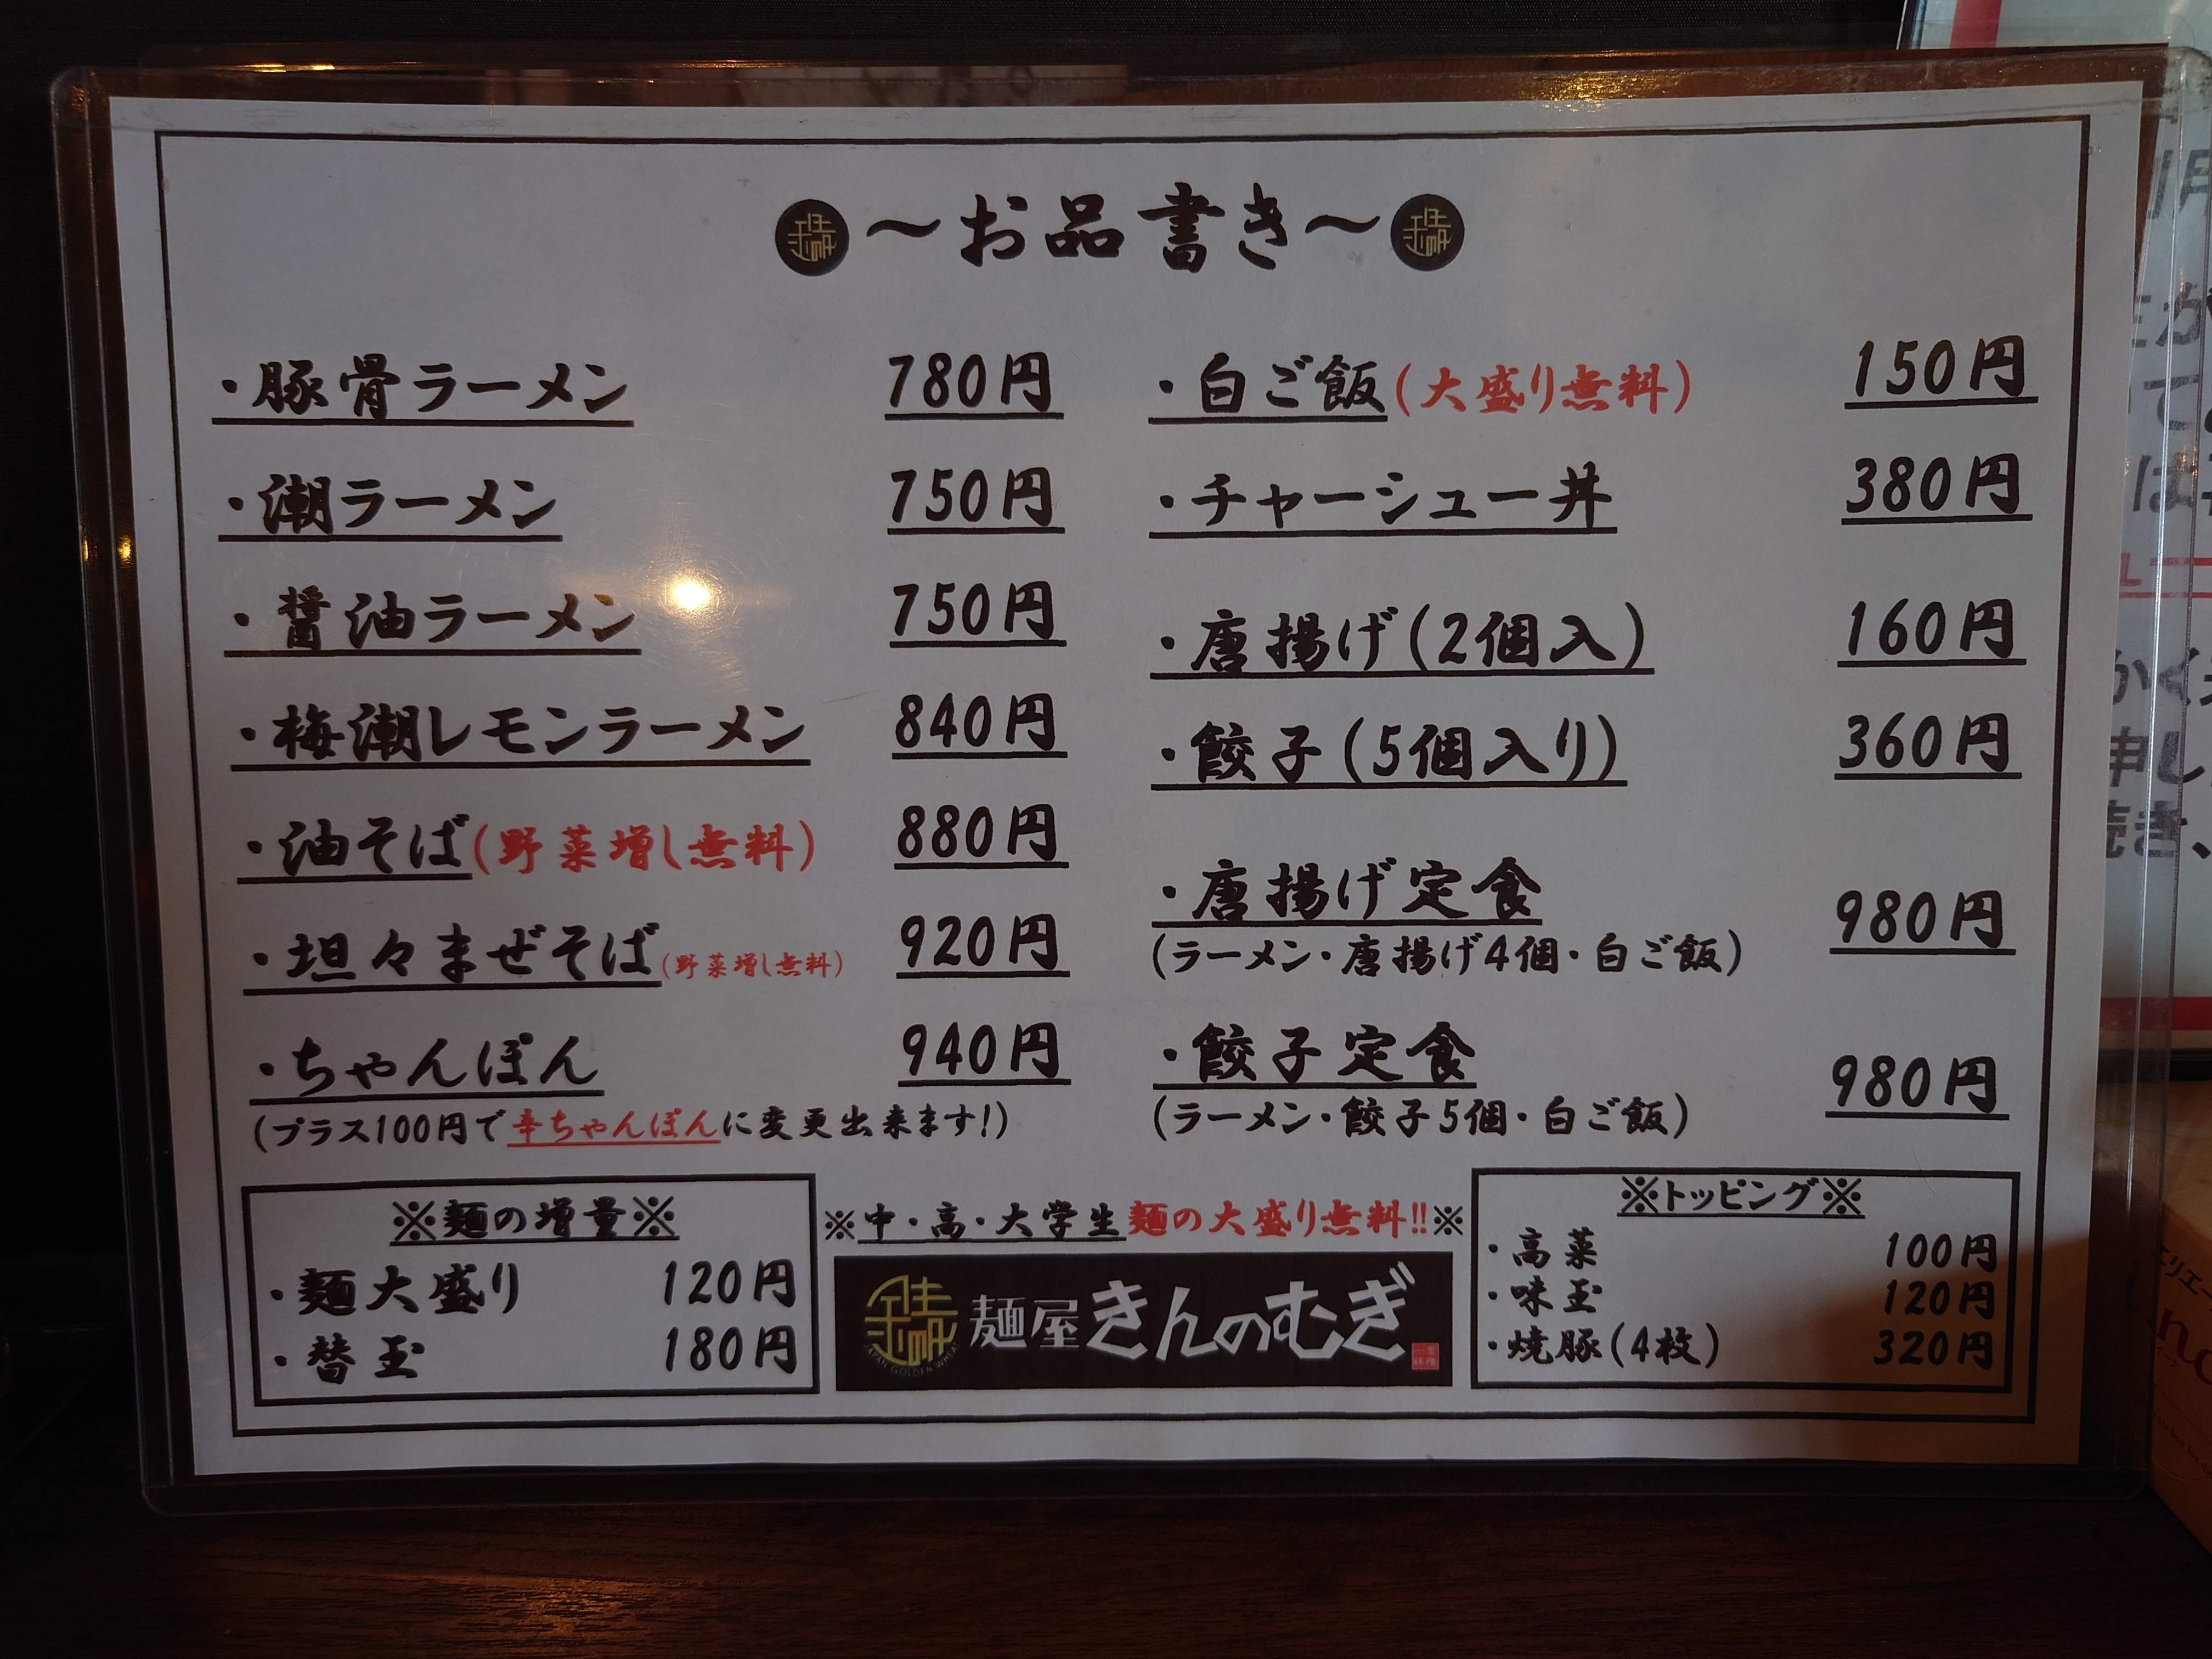 ～お品書き～
・豚骨ラーメン 780円
・潮ラーメン 750円
・醤油ラーメン 750円
・梅潮レモンラーメン 840円
・油そば(野菜増し無料) 880円
・坦々まぜそば(野菜増し無料) 920円
・ちゃんぽん 940円
(プラス100円で辛ちゃんぽんに変更出来ます!)
・白ご飯(大盛り無料) 150円
・チャーシュー丼 380円
・唐揚げ(2個入) 160円
・餃子(5個入り) 360円
・唐揚げ定食 980円
(ラーメン・唐揚げ4個・白ご飯)
・餃子定食 980円
(ラーメン・餃子5個・白ご飯)
※麺の増量※
・麺大盛り 120円
・替玉 180円
※中・高・大学生麺の大盛り無料!!※
麺屋 きんのむぎ
JAPAN GOLDEN WHEAT
※トッピング※
・高菜 100円
・味玉 120円
・焼豚(4枚) 320円